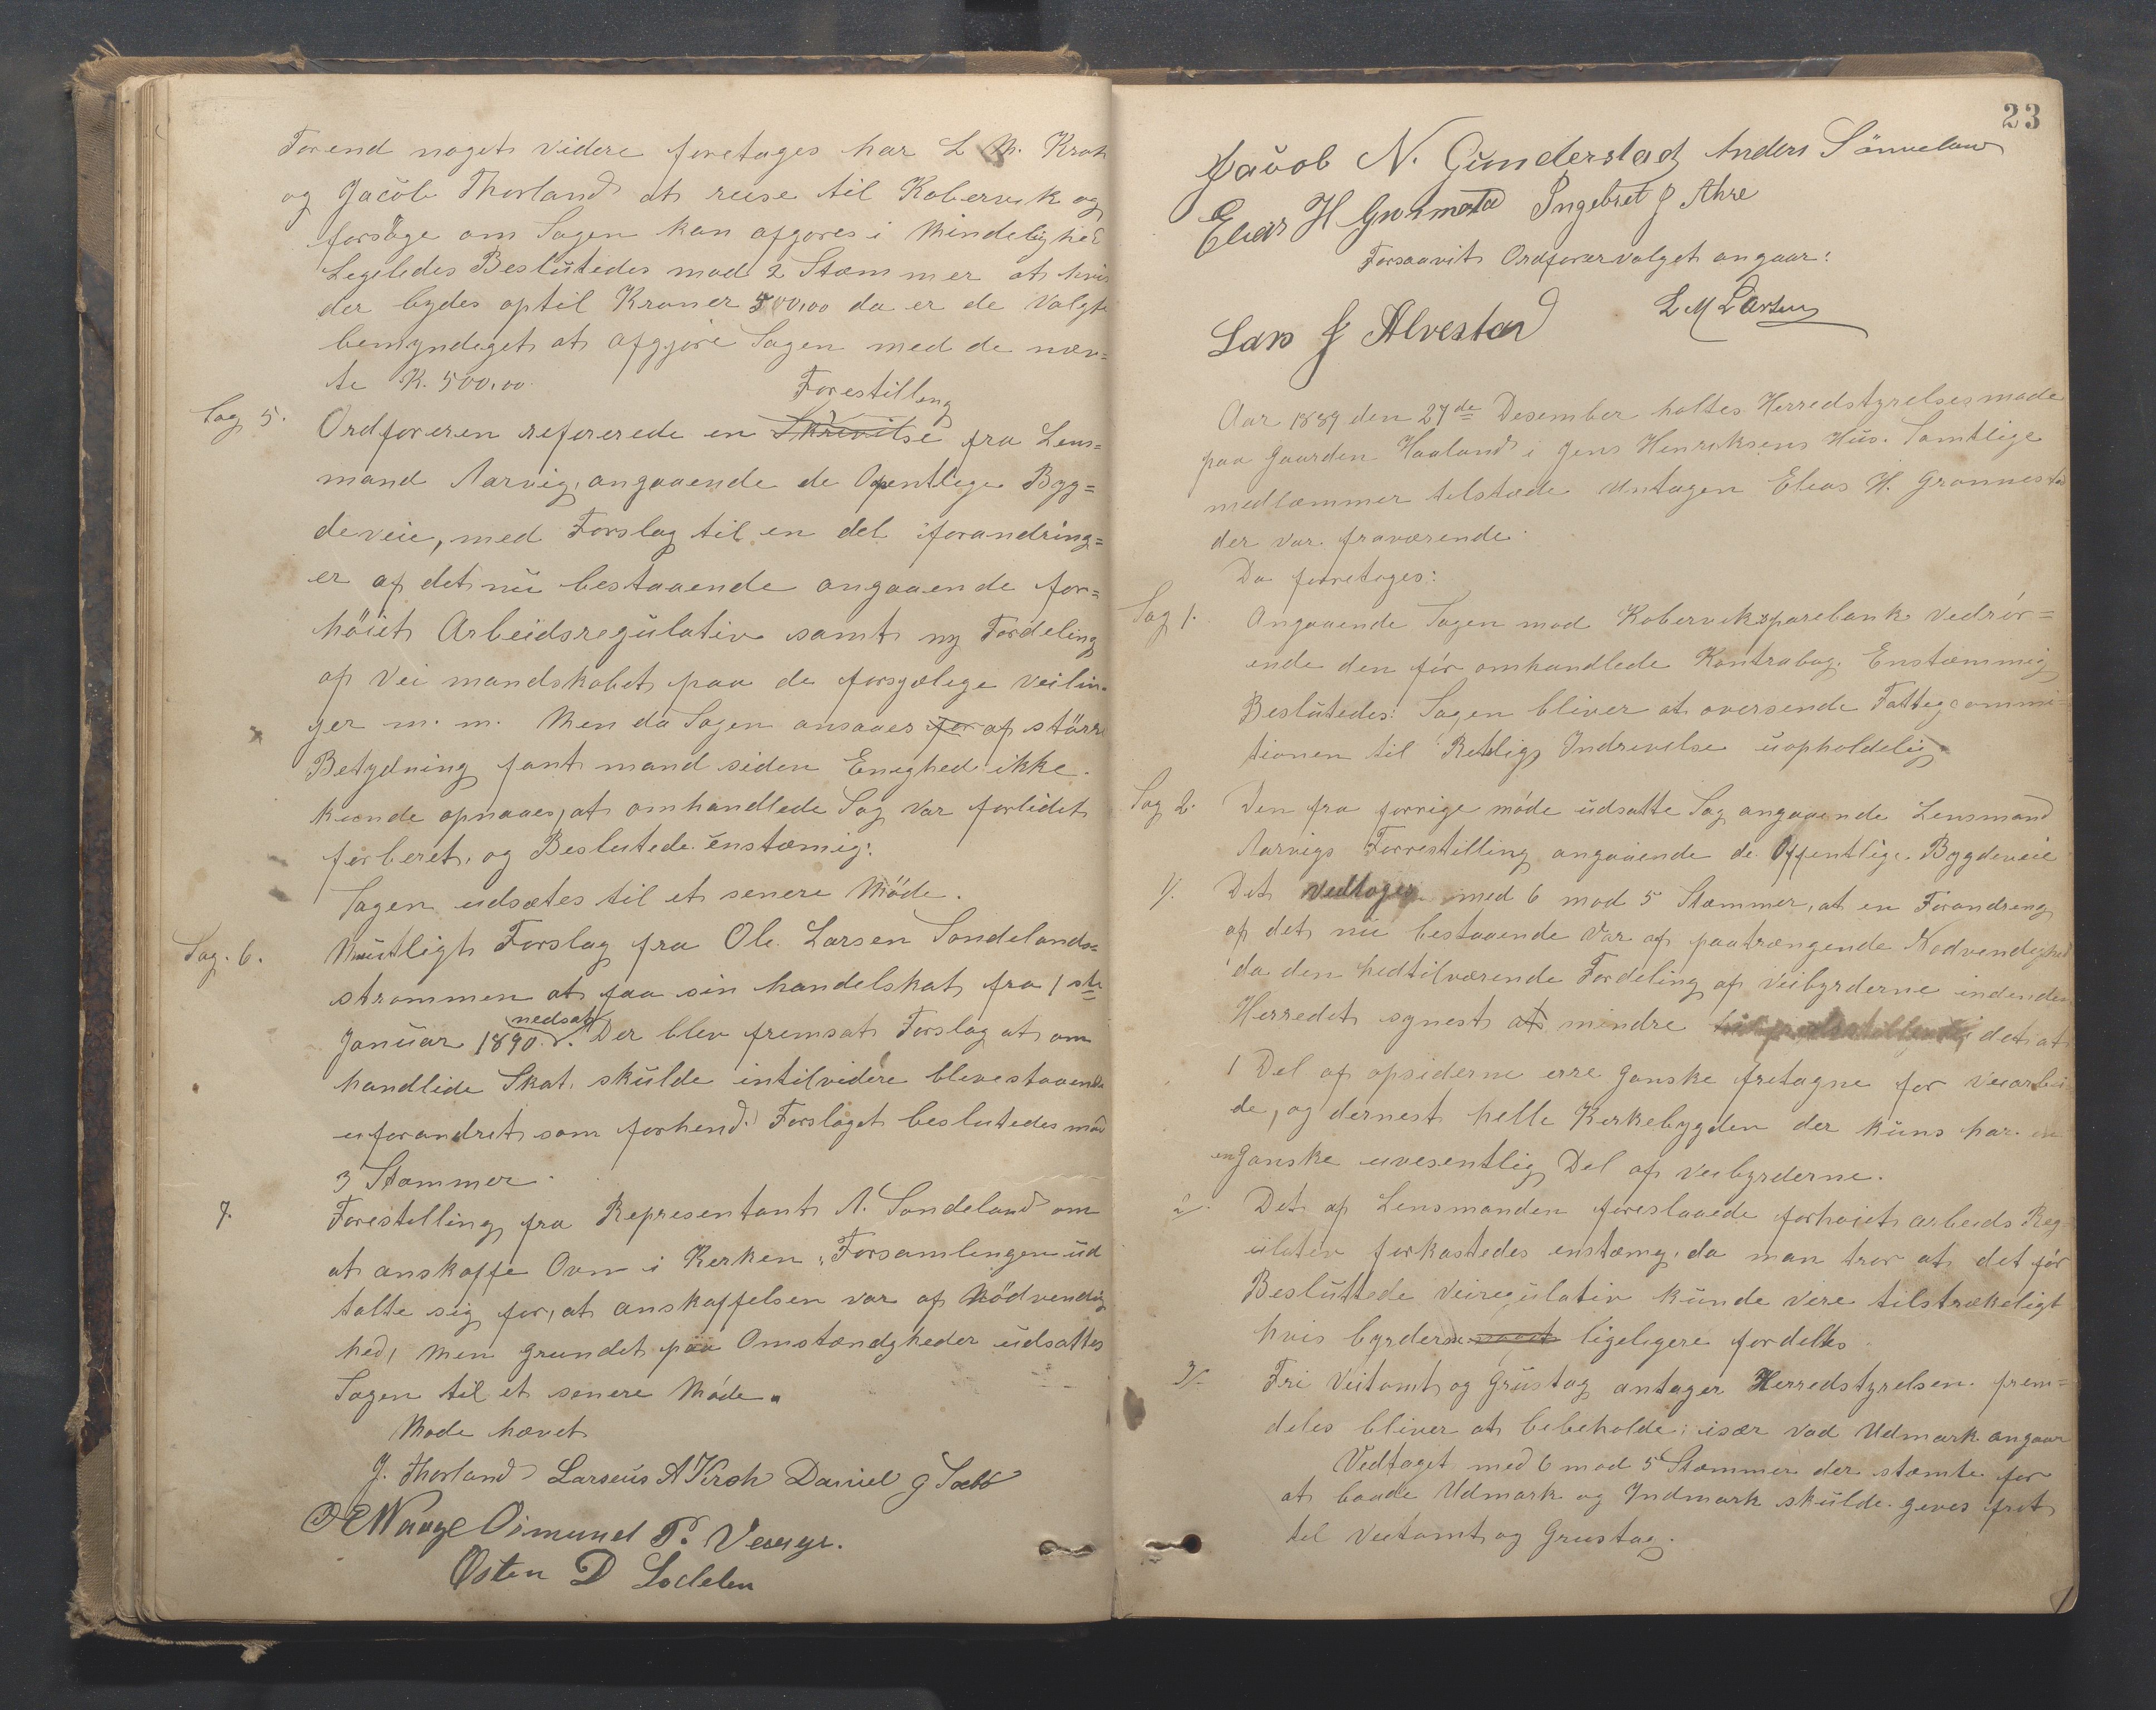 Forend noget videre foretages har L M. Kroh
og Jacob Thorland at reise til Kobervik og
forsöge om Sagen kan afgores i Mindelighed
Legeledes Beslutedes mod 2 Stæmmer at hvis
der bydes optil Kroner 500,00 da er de Valgte
bemyndeget at afgjøre Sagen med de næv=
te K. 500,00.
Forestilling
Sag 5. Ordføreren refererede en Skrivilse fra Lens=
mand Aarvig, angaaende de Opentlege Byg=
deveie, med Forslag til en del forandring=
er af det nu bestaaende angaaende for=
höiet Arbeidsregulativ samt ny Fordeling
af Vei mandskabet paa de forsgjelige veilin=
jer m. m. Men da Sagen ansaaes for af större
Betydning fant mand siden Enighed ikke
kunde opnaaes, at omhandlede Sag var forlidet
forberet. og Beslutede enstæmig:
Sagen udsætes til et senere Möde.
Sag. 6. Muntligt Forslag fra Ole Larsen Sondelands=
strømmen at faa sin handelskat fra 1ste
nedsat
Januar 1890. Der blev fremsat Forslag at om
handlide Skat. skulde intilvidere blivestaaende
uforandret som forhend. Forslaget beslutedes mod
3 Stæmmer.
7. Forestelling fra Representant A. Sondeland om
at anskaffe Ovn i Kerken. Forsamlingen ud
talte sig for, at anskaffelsen var af Nödvendig
hed, men grundet paa Omstændgheder udsattes
Sagen til et senere Möde.
Møde hævet
J. Thorland Larseus A Kroh Daniel J Sæbø
O E Waage Osmund P. Veenge.
Østen D Lodelen
23
Jacob N. Gunderstad Anders Sönnelow
Elias H Grønnestad Ingebret J Ahre
Forsaavit Ordførervalget angaar:
Lars J Alvestad L M Larsen
Aar 1889 den 27de Desember holtes Herredstyrelsesmøde
paa Gaarden Haaland i Jens Henriksens Hus. Samtlige
medlæmmer telstæde Untagen Elias H. Grønnestad
der var fraværende.
Da foretoges:
Sag 1. Angaaende Sagen mod Koberviksparebank Vedrör=
ende den för omhandlede Kontrabog. Enstæmmig
Beslutedes: Sagen bliver at oversende Fattegcommi
tionen til Retlig Indrivelse uopholdelig
Sag 2. Den fra forrige möde udsatte Sag angaaende Lensmand
Aarvigs Forrestilling angaaende de Offentlige Bygdeveie
1/. Det vedtoges med 6 mod 5 Stæmmer, at en Forandreng
af det nu bestaaende Var af paatrængende Nødvendighed
da den hedtilværende Fordeling af Veibyrderne indenden
Herredet synest at mindre idet at
1 Del af opsiderne erre ganske fretagne for veiarbei
de, og dernest helle Kerkebygden der kuns har en
en Ganske uvesentlig Del af veibyrderne.
2/. Det af Lensmanden foreslaaede forhøiet arbeids Reg
ulativ forkastedes enstæmg, da man tror at det för
Besluttede Veiregulativ kunde vere tilstrækeligt
hvis byrderne ligeligere fordeltes.
3/. Fri Veitomt og Grustag antager Herredstyrelsen frem=
deles bliver at bebeholde; især vad Udmark angaar
Vedtaget med 6 mod 5 Stæmmer der stæmte for
at baade Udmark og Indmark skulde geves frit
tel Veitomt og Grustag.